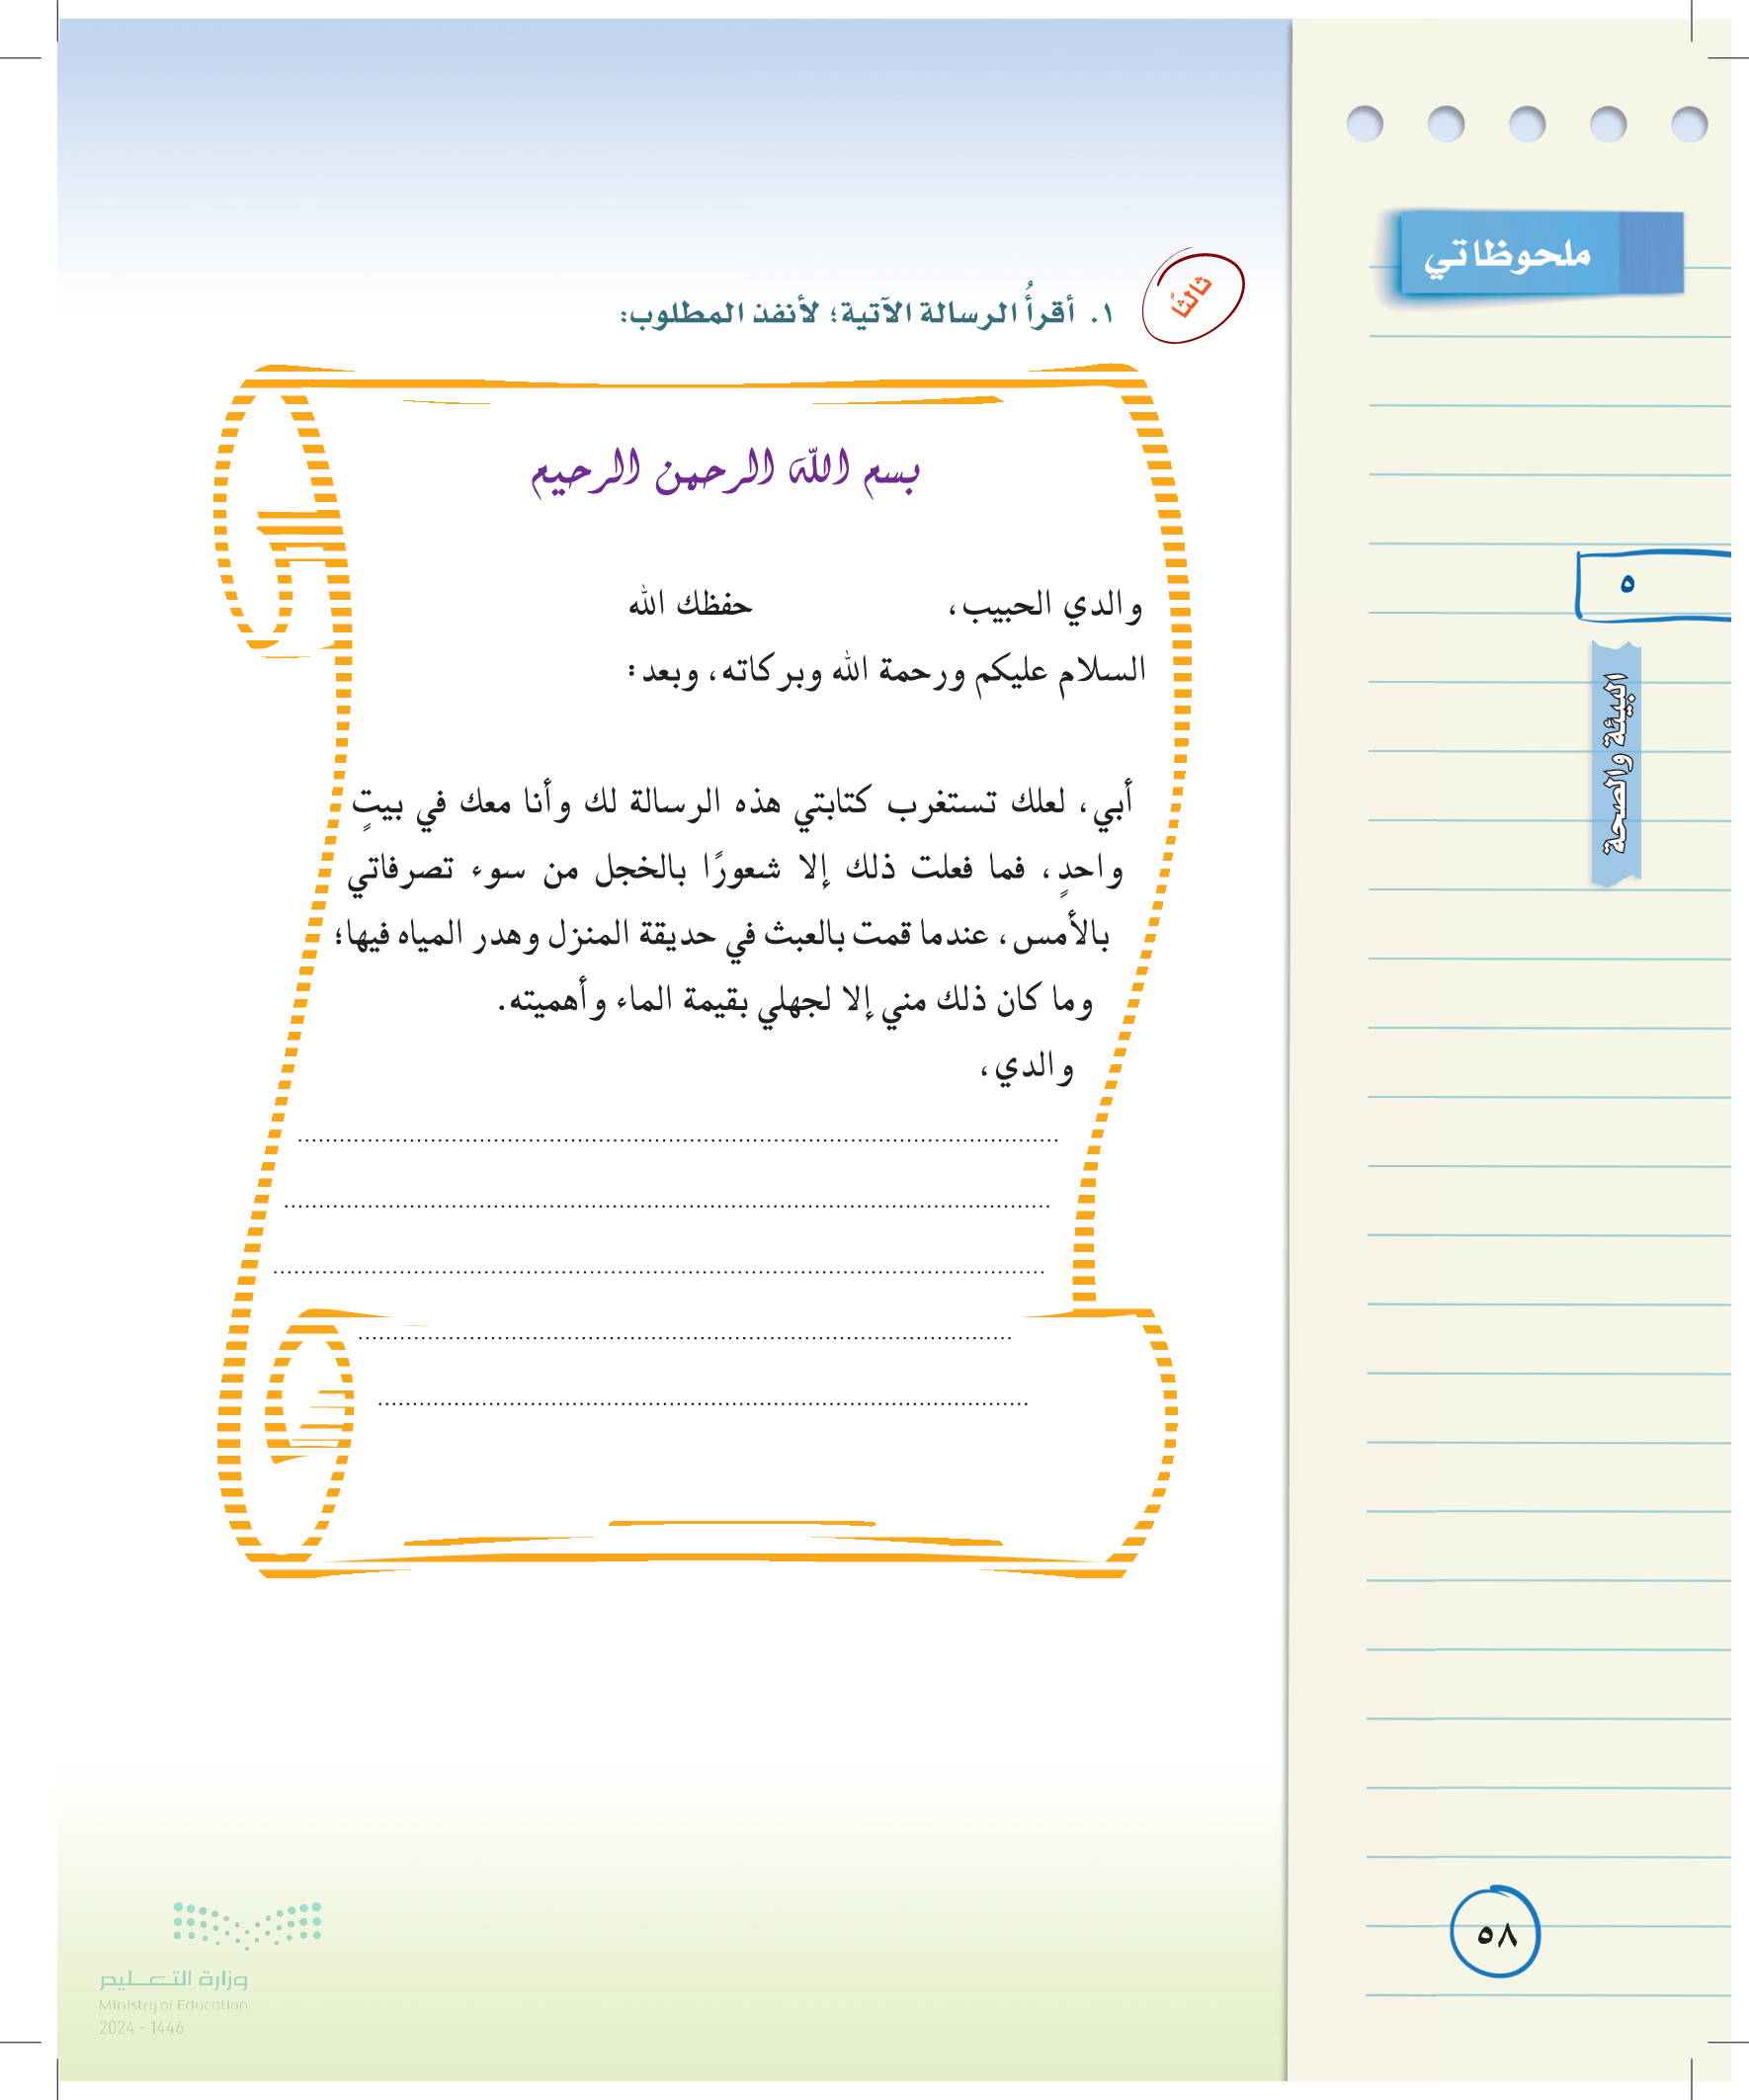 ملحوظاتي
ثالثًا
١. أقرأُ الرسالة الآتية؛ لأنفذ المطلوب:
بسم الله الرحمن الرحيم
والدي الحبيب، حفظك الله
السلام عليكم ورحمة الله وبركاته، وبعد:
أبي، لعلك تستغرب كتابتي هذه الرسالة لك وأنا معك في بيتٍ
واحدٍ، فما فعلت ذلك إلا شعورًا بالخجل من سوء تصرفاتي
بالأمس، عندما قمت بالعبث في حديقة المنزل وهدر المياه فيها؛
وما كان ذلك مني إلا لجهلي بقيمة الماء وأهميته.
والدي،
٥
البيئة والصحة
٥٨
وزارة التعليم
Ministry of Education
2024 - 1446